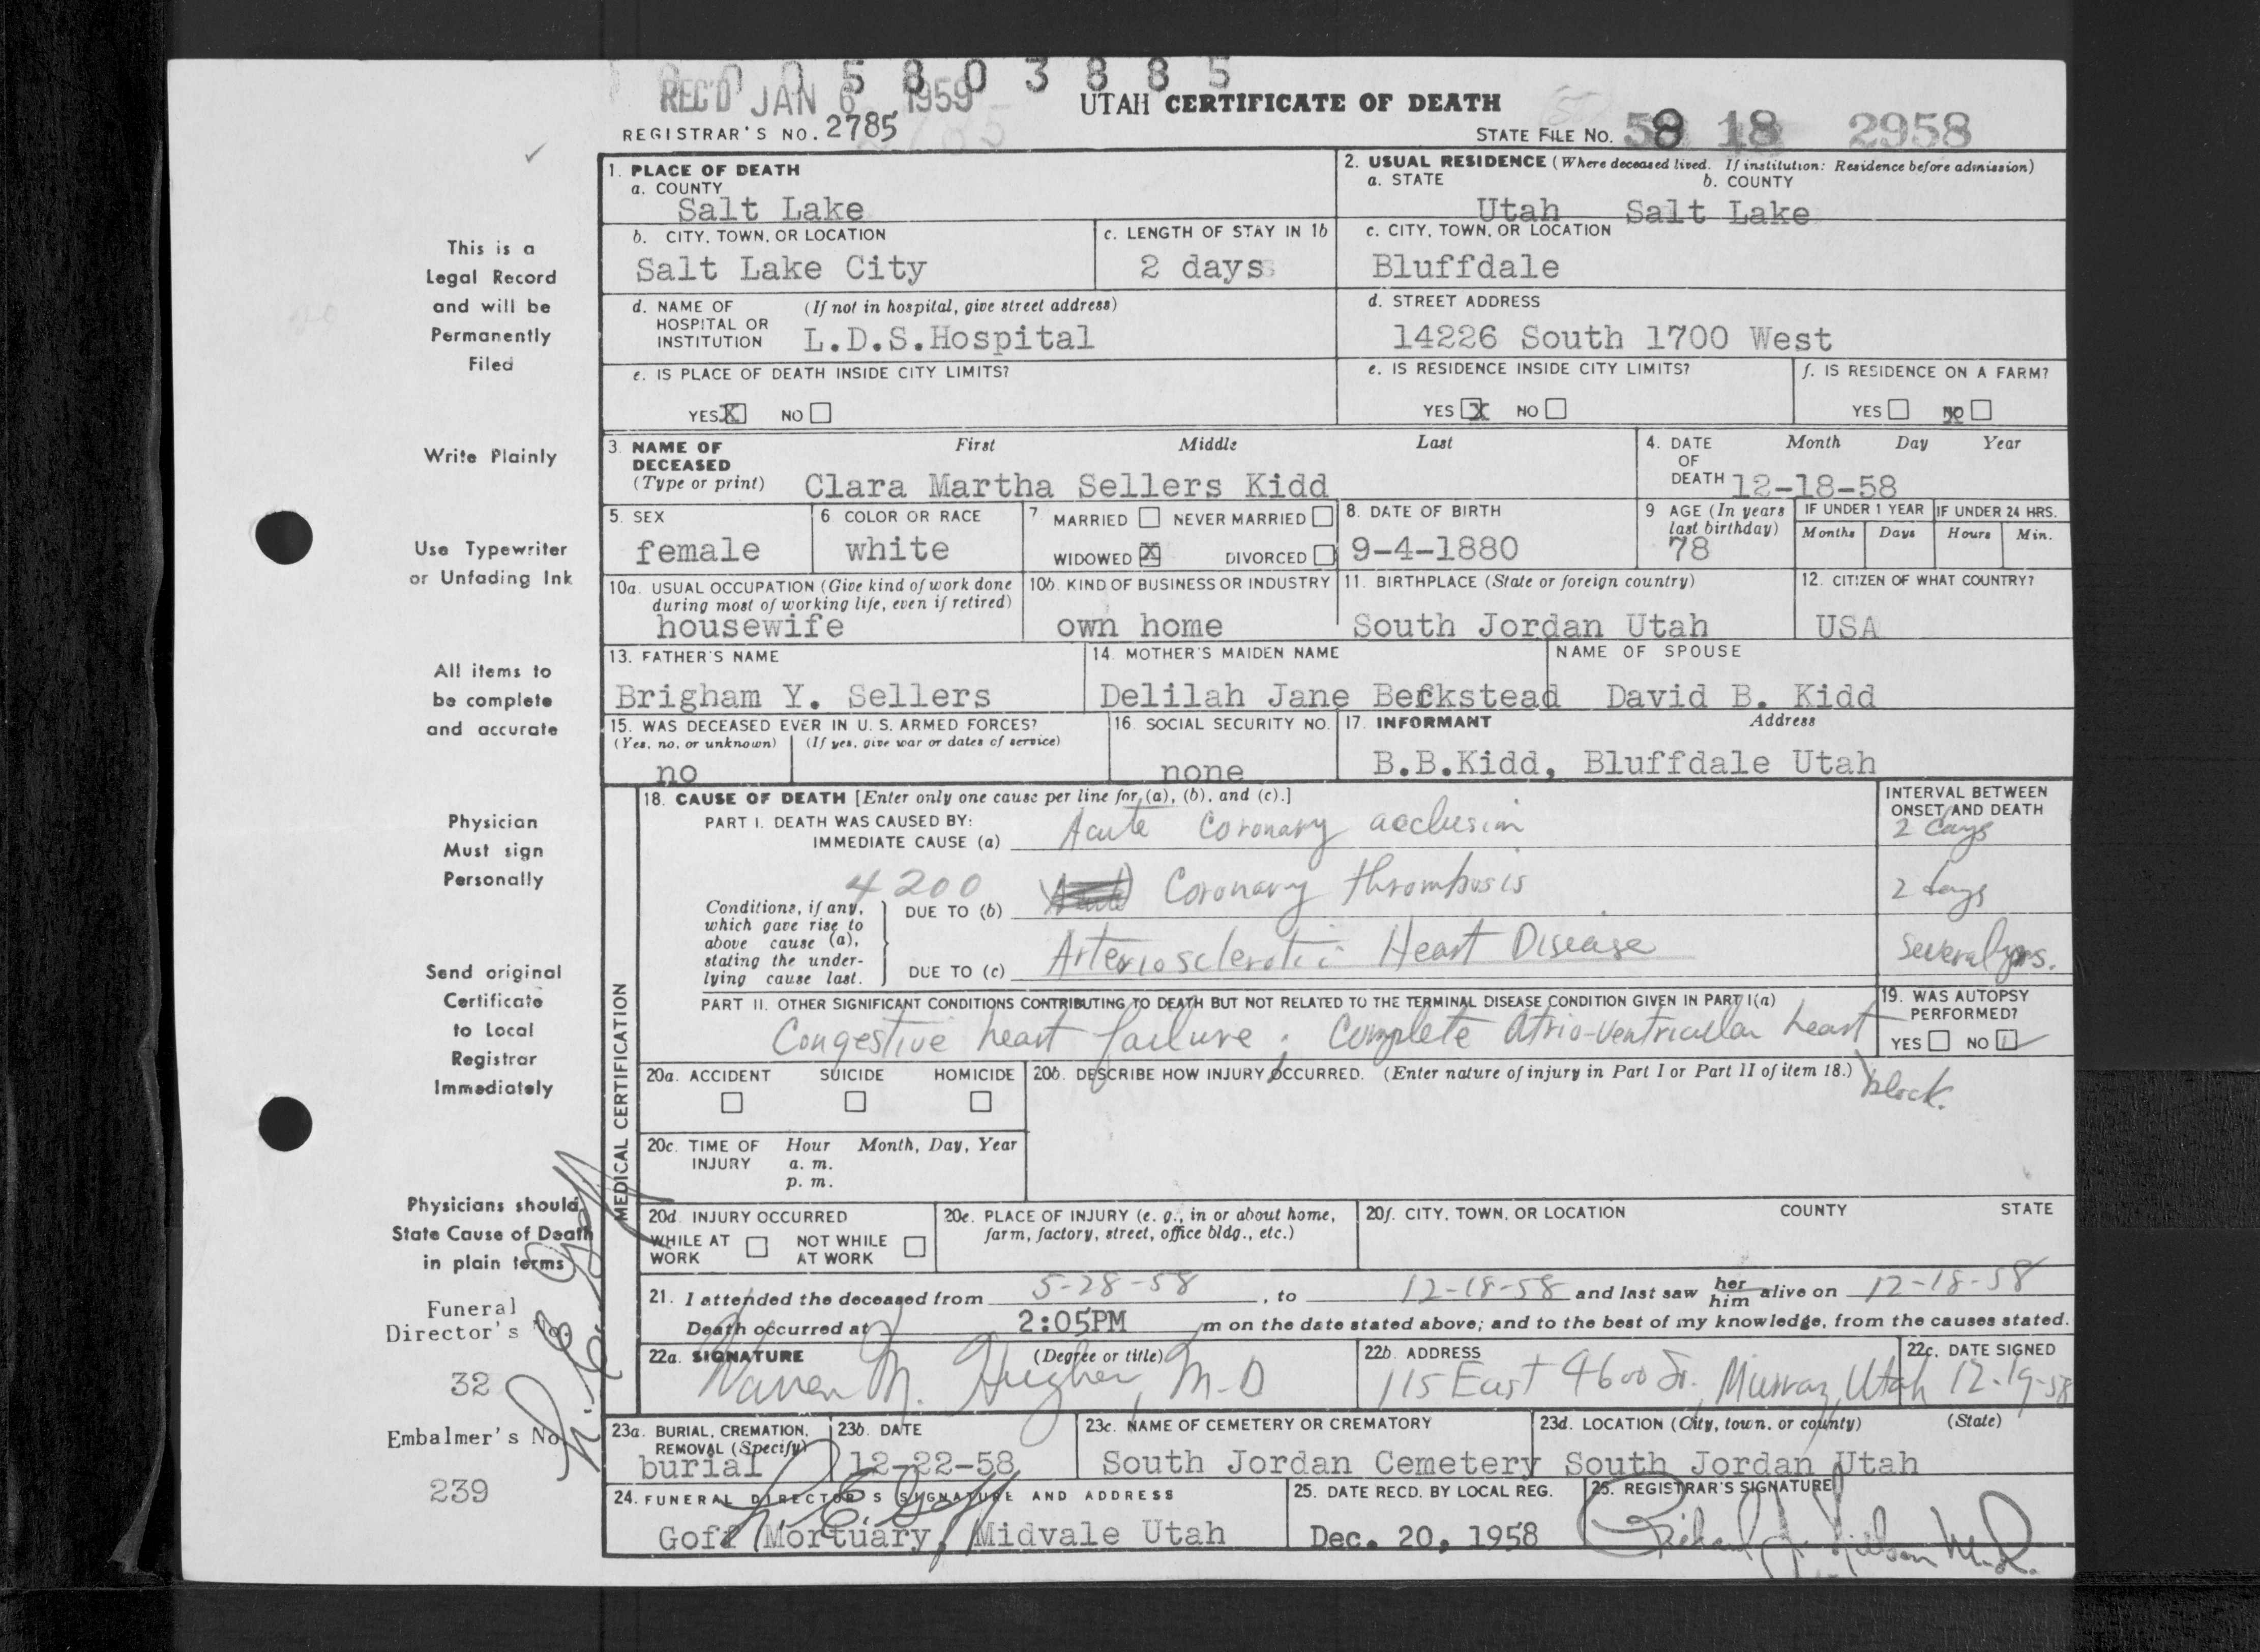 0 0 5 8 0 3 8 8 5
REC'D JAN 6 1959
UTAH CERTIFICATE OF DEATH
REGISTRAR'S NO. 2785
STATE FILE NO. 58 18 2958
1. PLACE OF DEATH
a. COUNTY
Salt Lake
2. USUAL RESIDENCE (Where deceased lived. If institution: Residence before admission)
a. STATE b. COUNTY
Utah Salt Lake
b. CITY, TOWN, OR LOCATION
Salt Lake City
c. LENGTH OF STAY IN 1b
2 days
c. CITY, TOWN, OR LOCATION
Bluffdale
d. NAME OF HOSPITAL OR INSTITUTION (If not in hospital, give street address)
L.D.S.Hospital
d. STREET ADDRESS
14226 South 1700 West
e. IS PLACE OF DEATH INSIDE CITY LIMITS?
YES X NO
e. IS RESIDENCE INSIDE CITY LIMITS?
YES X NO
f. IS RESIDENCE ON A FARM?
YES NO
3. NAME OF DECEASED (Type or print)
First Middle Last
Clara Martha Sellers Kidd
4. DATE OF DEATH
Month Day Year
12-18-58
5. SEX
female
6 COLOR OR RACE
white
7 MARRIED NEVER MARRIED
WIDOWED X DIVORCED
8. DATE OF BIRTH
9-4-1880
9 AGE (In years last birthday)
78
IF UNDER 1 YEAR
Months Days
IF UNDER 24 HRS.
Hours Min.
10a. USUAL OCCUPATION (Give kind of work done during most of working life, even if retired)
housewife
10b. KIND OF BUSINESS OR INDUSTRY
own home
11. BIRTHPLACE (State or foreign country)
South Jordan Utah
12. CITIZEN OF WHAT COUNTRY?
USA
13. FATHER'S NAME
Brigham Y. Sellers
14. MOTHER'S MAIDEN NAME
Delilah Jane Beckstead
NAME OF SPOUSE
David B. Kidd
15. WAS DECEASED EVER IN U. S. ARMED FORCES?
(Yes, no, or unknown) (If yes, give war or dates of service)
no
16. SOCIAL SECURITY NO.
none
17. INFORMANT Address
B.B.Kidd, Bluffdale Utah
MEDICAL CERTIFICATION
18. CAUSE OF DEATH [Enter only one cause per line for (a), (b), and (c).]
PART I. DEATH WAS CAUSED BY:
IMMEDIATE CAUSE (a) Acute Coronary occlusion
INTERVAL BETWEEN ONSET AND DEATH
2 days
4200
Conditions, if any, which gave rise to above cause (a), stating the underlying cause last.
DUE TO (b) Coronary thrombosis
2 days
DUE TO (c) Arteriosclerotic Heart Disease
several yrs.
PART II. OTHER SIGNIFICANT CONDITIONS CONTRIBUTING TO DEATH BUT NOT RELATED TO THE TERMINAL DISEASE CONDITION GIVEN IN PART I(a)
Congestive heart failure; Complete atrio-ventricular heart block.
19. WAS AUTOPSY PERFORMED?
YES NO
20a. ACCIDENT SUICIDE HOMICIDE
20b. DESCRIBE HOW INJURY OCCURRED. (Enter nature of injury in Part I or Part II of item 18.)
20c. TIME OF INJURY Hour Month, Day, Year
a. m.
p. m.
20d. INJURY OCCURRED
WHILE AT WORK NOT WHILE AT WORK
20e. PLACE OF INJURY (e. g., in or about home, farm, factory, street, office bldg., etc.)
20f. CITY, TOWN, OR LOCATION COUNTY STATE
21. I attended the deceased from 5-28-58, to 12-18-58 and last saw her him alive on 12-18-58
Death occurred at 2:05PM m on the date stated above; and to the best of my knowledge, from the causes stated.
22a. SIGNATURE (Degree or title)
Warren M. Hughes, M.D
22b. ADDRESS
115 East 4600 So. Murray, Utah
22c. DATE SIGNED
12-19-58
23a. BURIAL, CREMATION, REMOVAL (Specify)
burial
23b. DATE
12-22-58
23c. NAME OF CEMETERY OR CREMATORY
South Jordan Cemetery
23d. LOCATION (City, town, or county) (State)
South Jordan Utah
24. FUNERAL DIRECTOR'S SIGNATURE AND ADDRESS
Goff Mortuary, Midvale Utah
25. DATE RECD. BY LOCAL REG.
Dec. 20, 1958
26. REGISTRAR'S SIGNATURE
This is a
Legal Record
and will be
Permanently
Filed
Write Plainly
Use Typewriter
or Unfading Ink
All items to
be complete
and accurate
Physician
Must sign
Personally
Send original
Certificate
to Local
Registrar
Immediately
Physicians should
State Cause of Death
in plain terms
Funeral
Director's No.
32
Embalmer's No
239